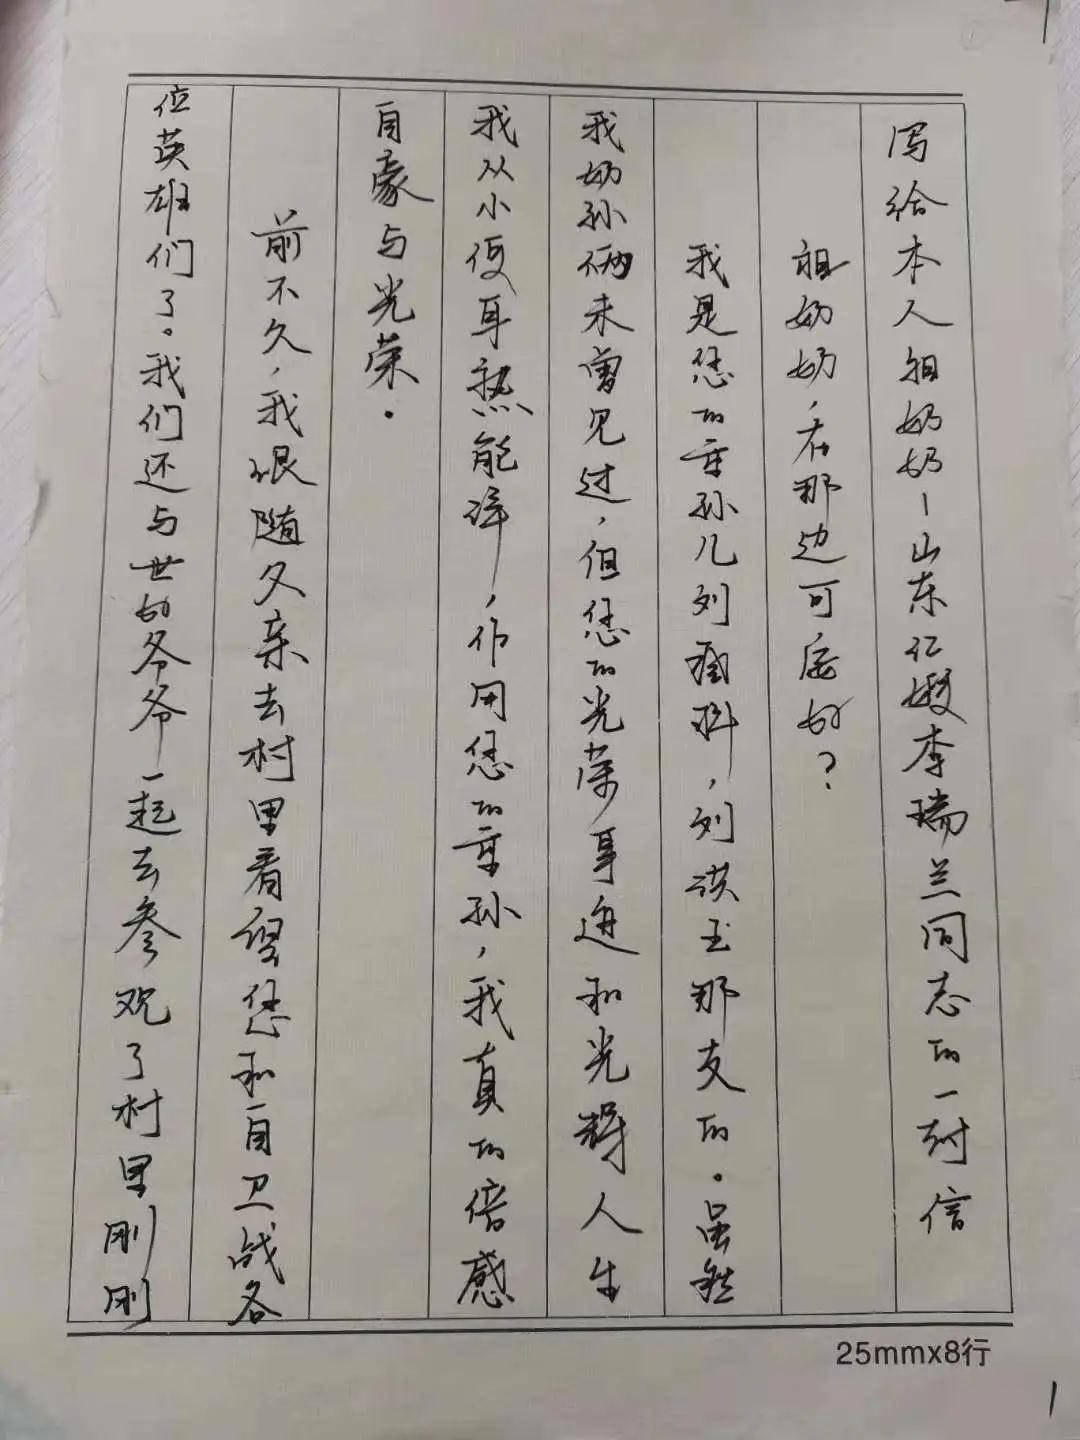 写给本人祖奶奶—山东仁嫂李瑞兰同志的一封信
祖奶奶，在那边可否好？
我是您的重孙儿刘科，刘洪玉那支的。虽然
我奶孙俩未曾见过，但您的光荣事迹和光辉人生
我从小便耳熟能详，作用您的重孙，我真的倍感
自豪与光荣。
前不久，我跟随父亲去村里看望您和自卫战各
位英雄们了。我们还与世的爷爷一起去参观了村里刚刚
25mmx8行
1